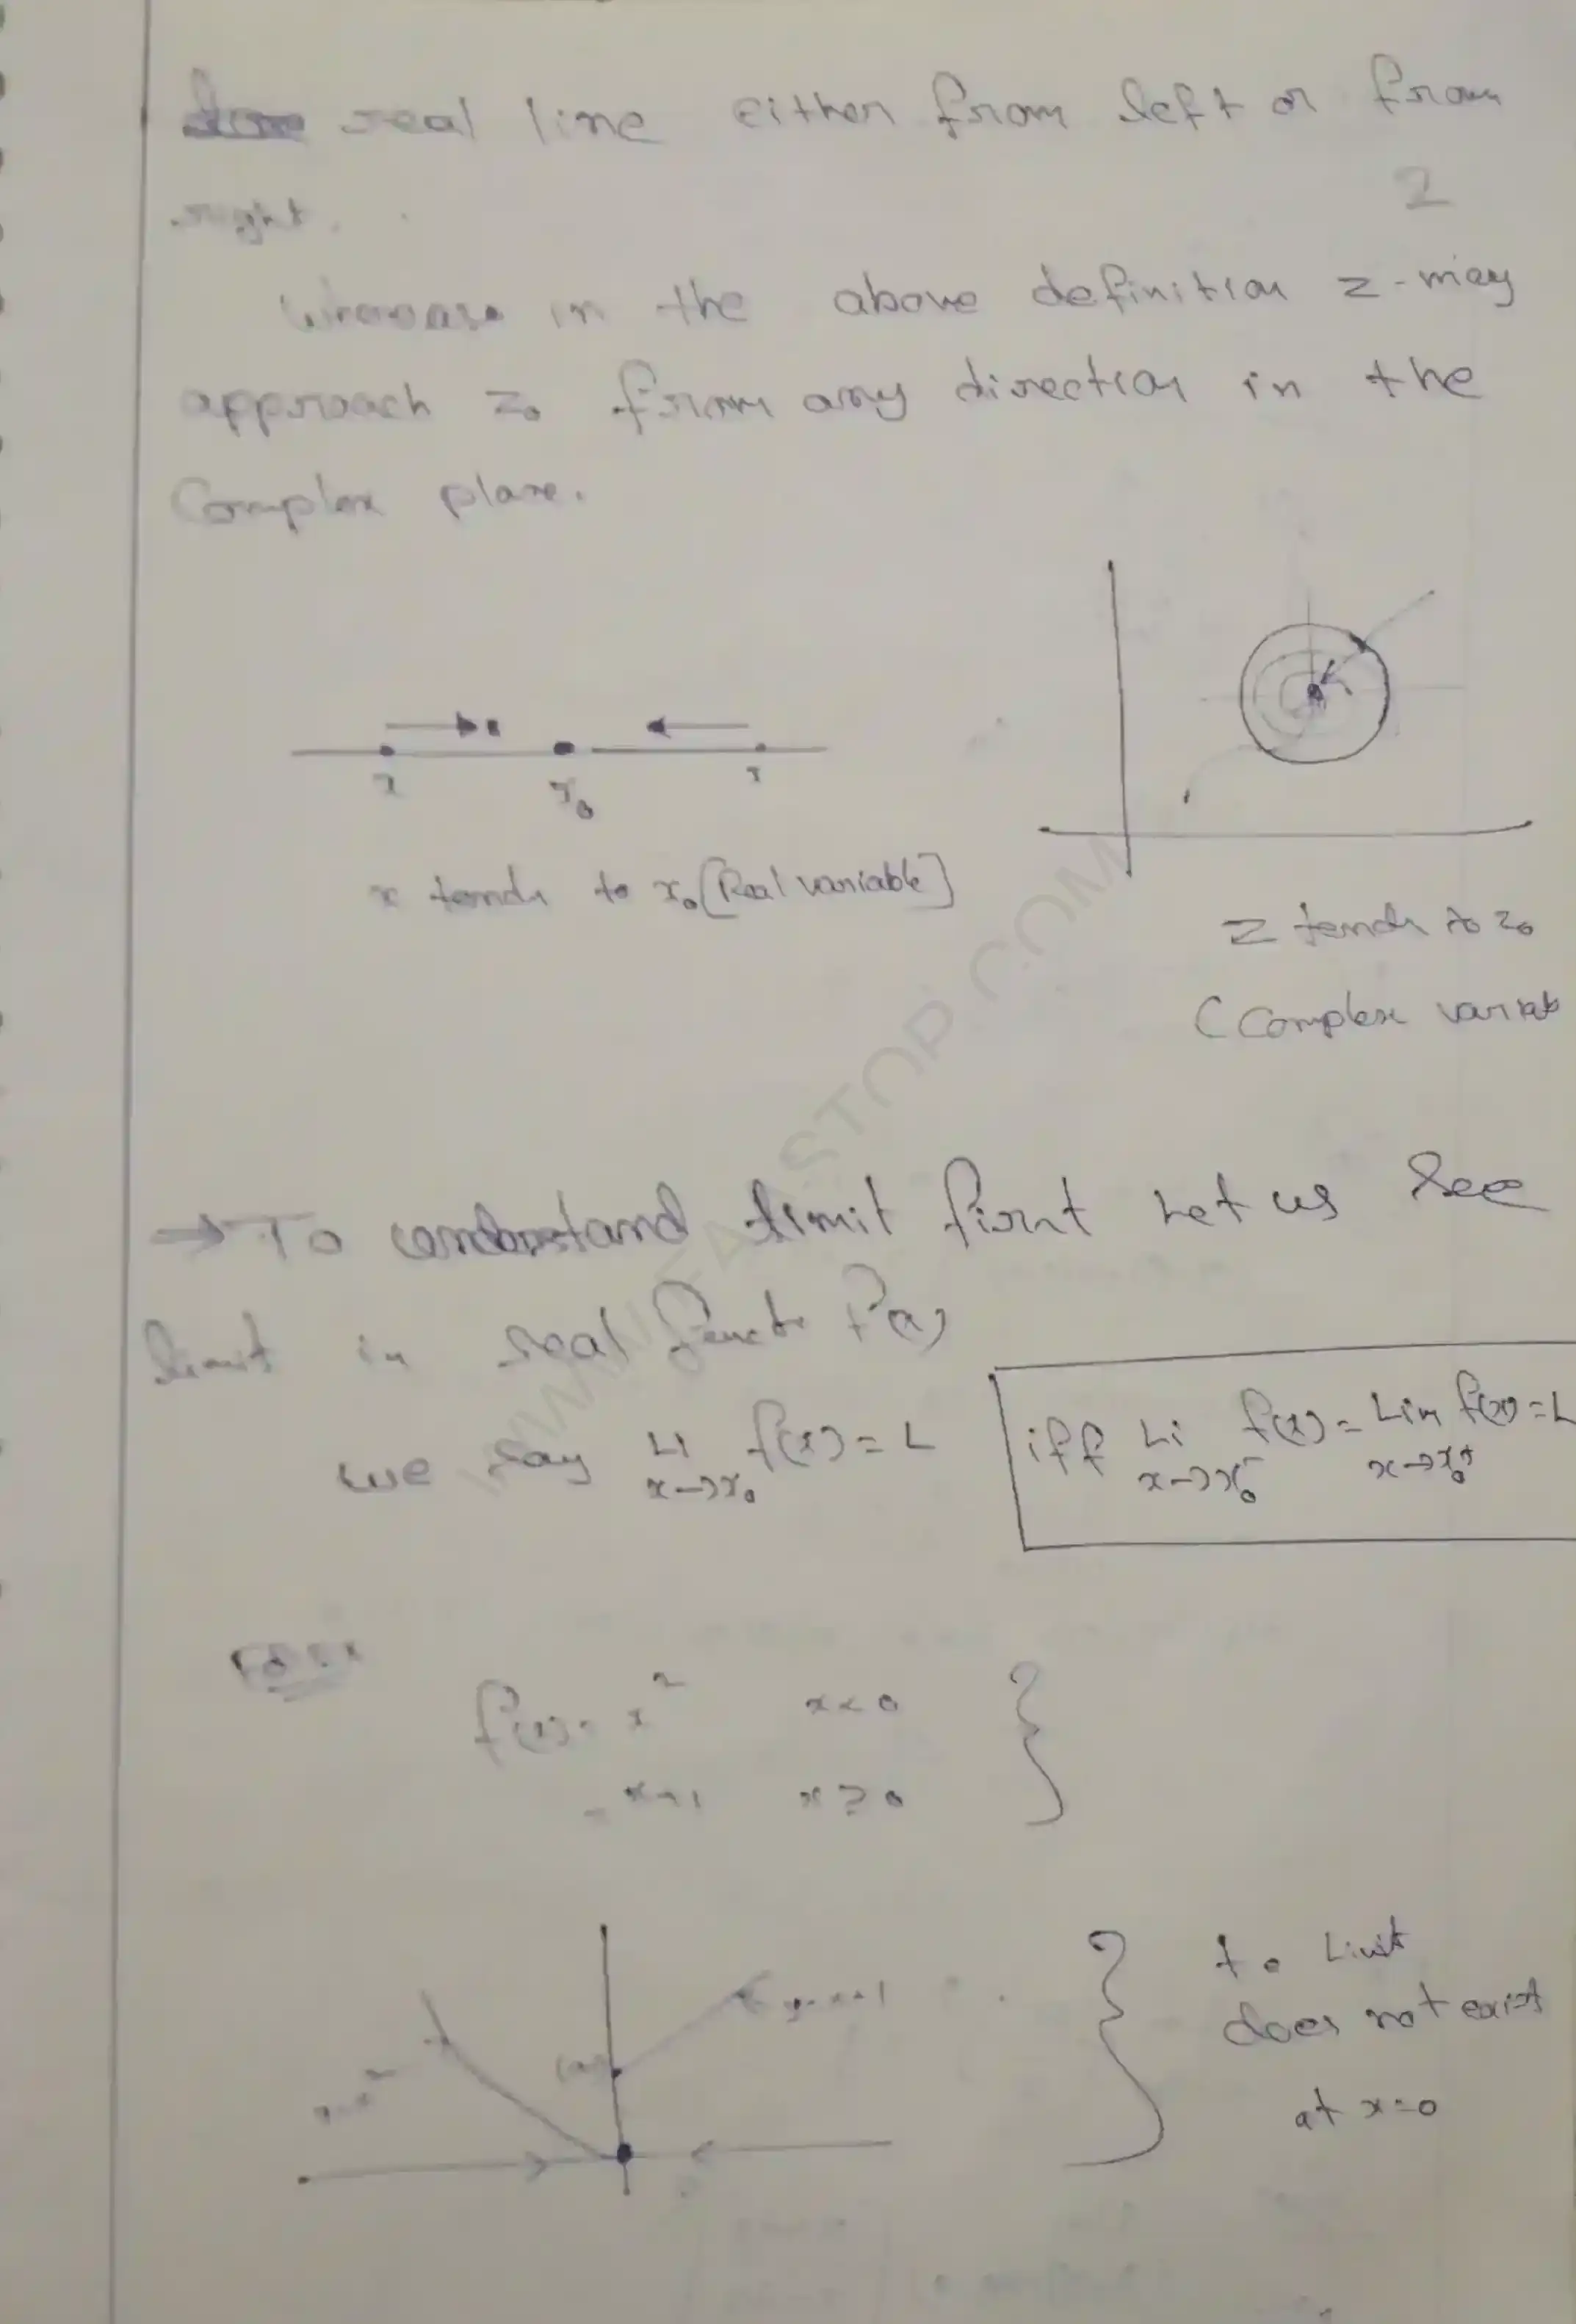 real line either from left or from
right.
2
Whereas in the above definition z-may
approach z₀ from any direction in the
Complex plane.
x x₀ x
x tends to x₀ [Real variable]
z tends to z₀
(Complex variab
→ To understand limit first Let us see
limit in real f(x)
we say Li x→x₀ f(x) = L
iff Li x→x₀⁻ f(x) = Lim x→x₀⁺ f(x) = L
f(x) = x² x < 0
= x+1 x ≥ 0
y=x+1
Limit
does not exist
at x=0
WWW. STOP.COM